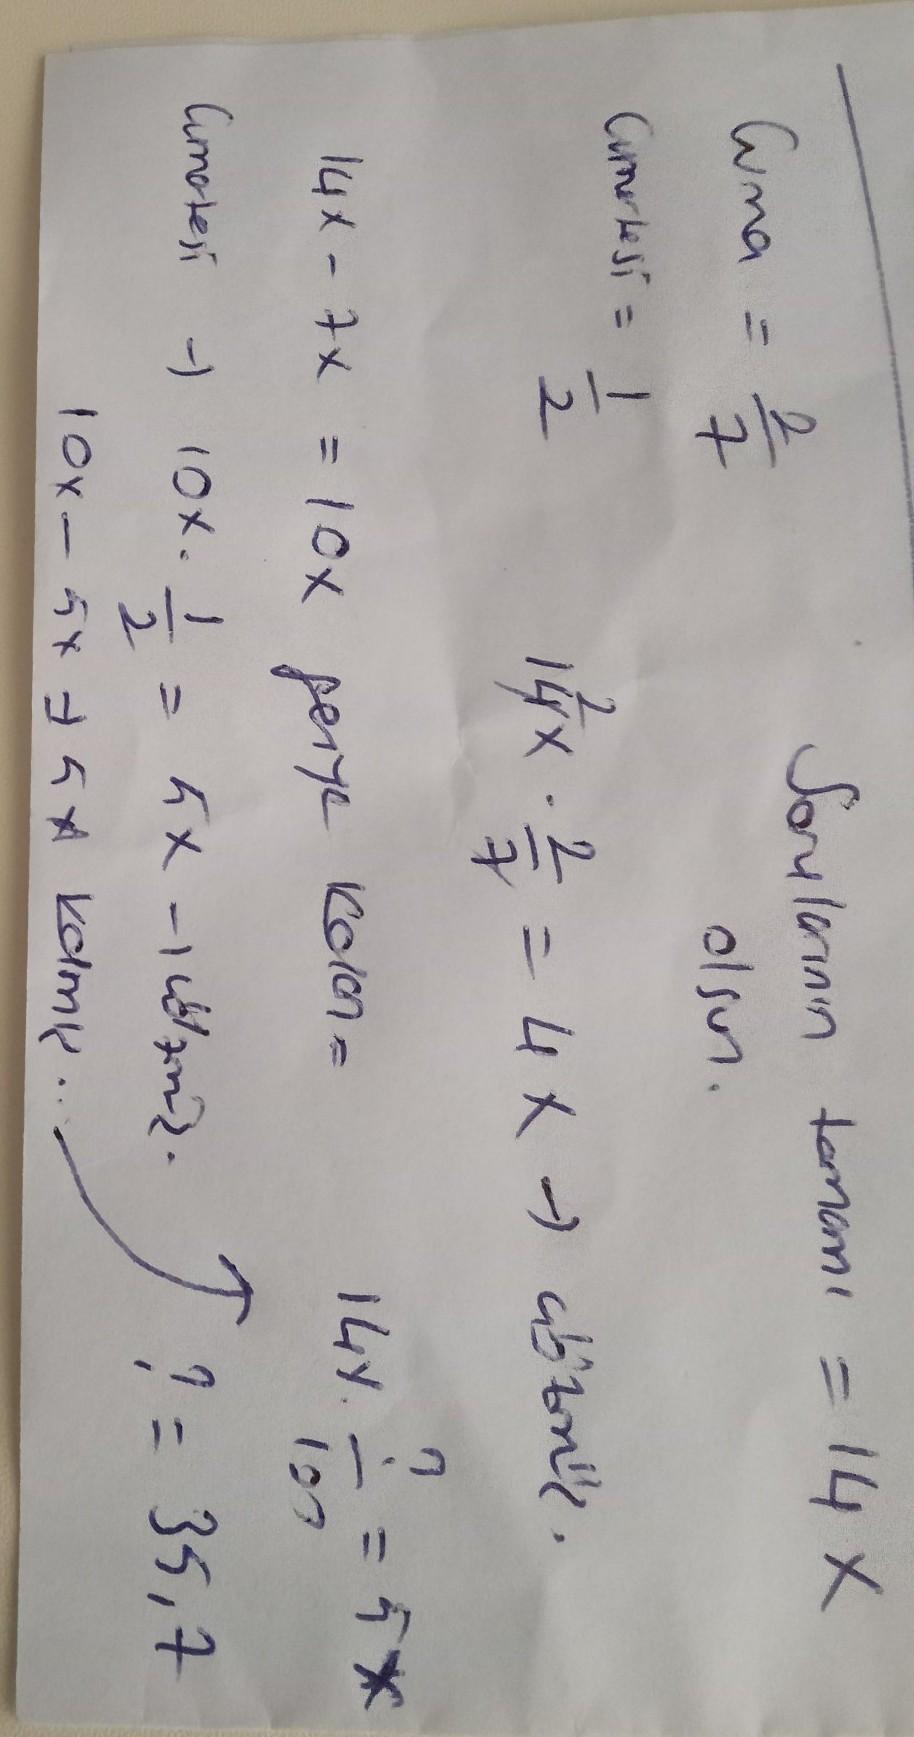 Soruların tamamı = 14x
olsun.
Cuma = 2/7
Cumartesi = 1/2
14x · 2/7 = 4x → çözmüş.
14x - 7x = 10x geriye kalan =
Cumartesi → 10x · 1/2 = 5x → çözmüş.
10x - 5x → 5x kalmış..
14x · ?/100 = 5x
? = 35,7